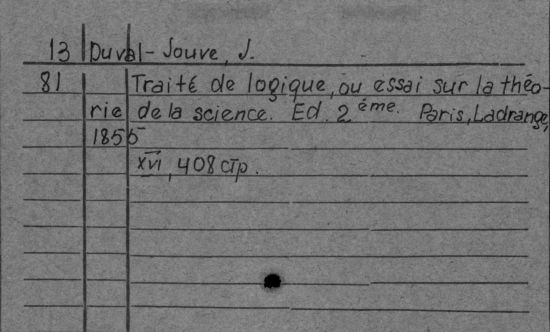 13 Duval-Jouve, J.
81 Traité de logique, ou essai sur la théo-
rie de la science. Ed. 2 éme. Paris, Ladrange,
1855
XVI, 408 стр.